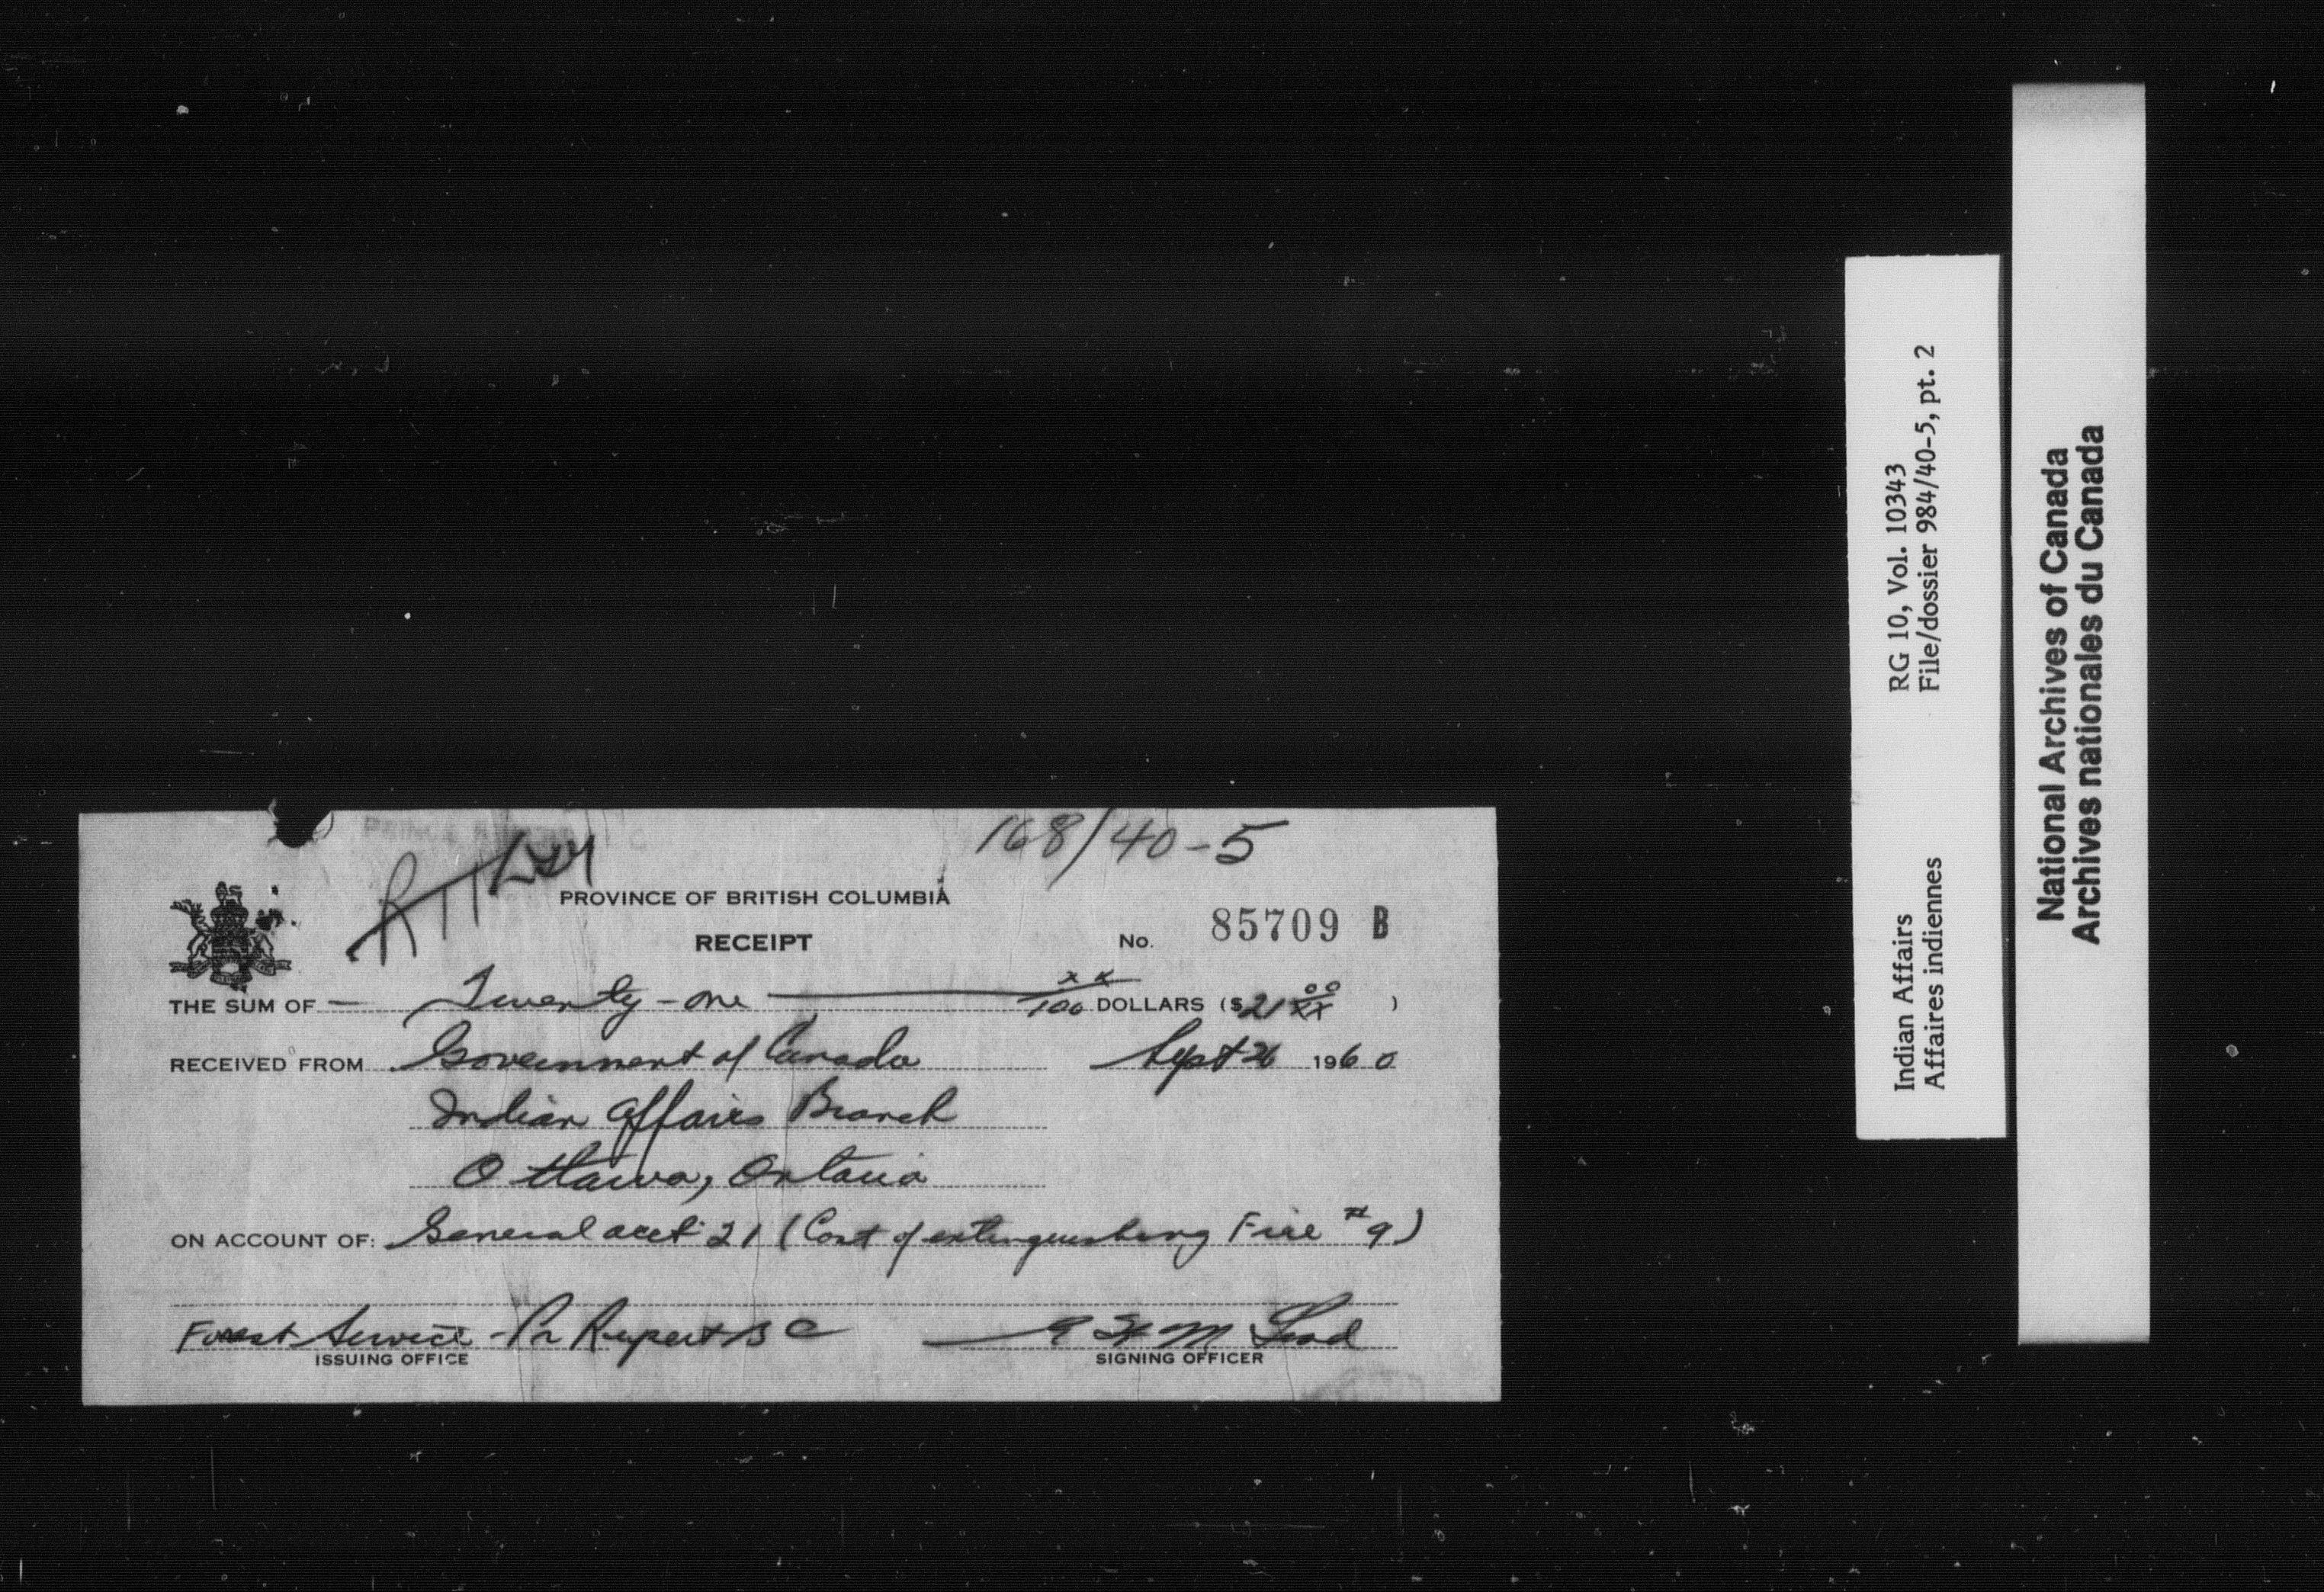 168/40-5
PROVINCE OF BRITISH COLUMBIA
RECEIPT
No. 85709 B
THE SUM OF — Twenty-one — xx/100 DOLLARS ($21 00/xx )
RECEIVED FROM Government of Canada Sept 26 1960
Indian Affairs Branch
Ottawa, Ontario
ON ACCOUNT OF: General acct 21 (Cost of extinguishing Fire #9)
Forest Service - Pr Rupert B C
ISSUING OFFICE
SIGNING OFFICER
Indian Affairs RG 10, Vol. 10343
Affaires indiennes File/dossier 984/40-5, pt. 2
National Archives of Canada
Archives nationales du Canada